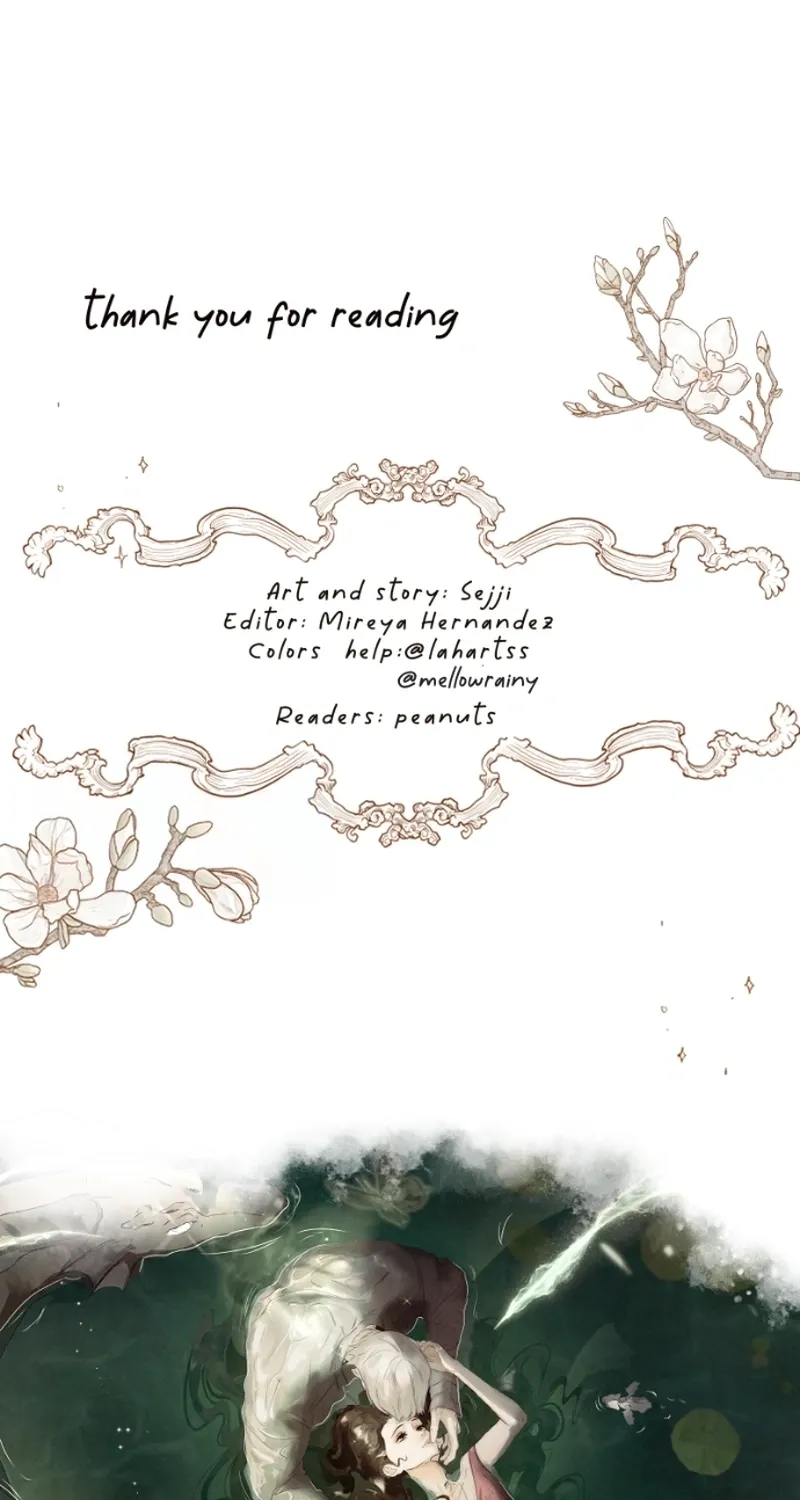 thank you for reading
Art and story: Sejji
Editor: Mireya Hernandez
Colors help:@lahartss
@mellowrainy
Readers: peanuts